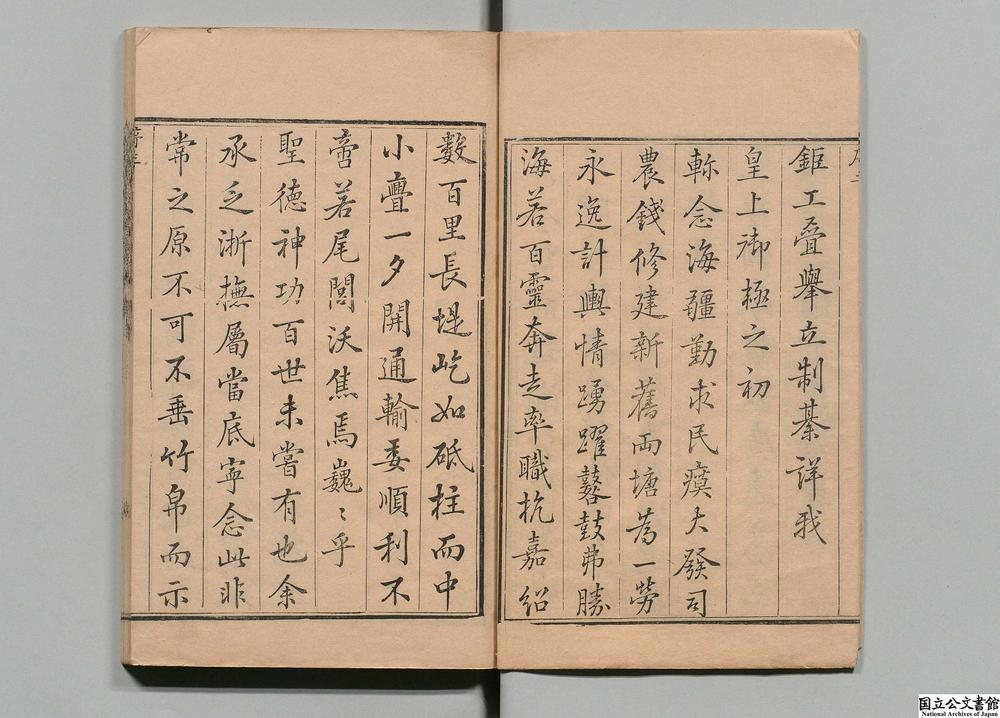 鉅工疊舉立制綦詳我
皇上御極之初
軫念海疆勤求民瘼大發司
農錢修建新舊兩塘為一勞
永逸計輿情踴躍鼛鼓弗勝
海若百靈奔走率職杭嘉紹
數百里長堤屹如砥柱而中
小亹一夕開通輸委順利不
啻若尾閭沃焦焉巍〻乎
聖德神功百世未嘗有也余
承乏浙撫屬當底寧念此非
常之原不可不垂竹帛而示
国立公文書館
National Archives of Japan